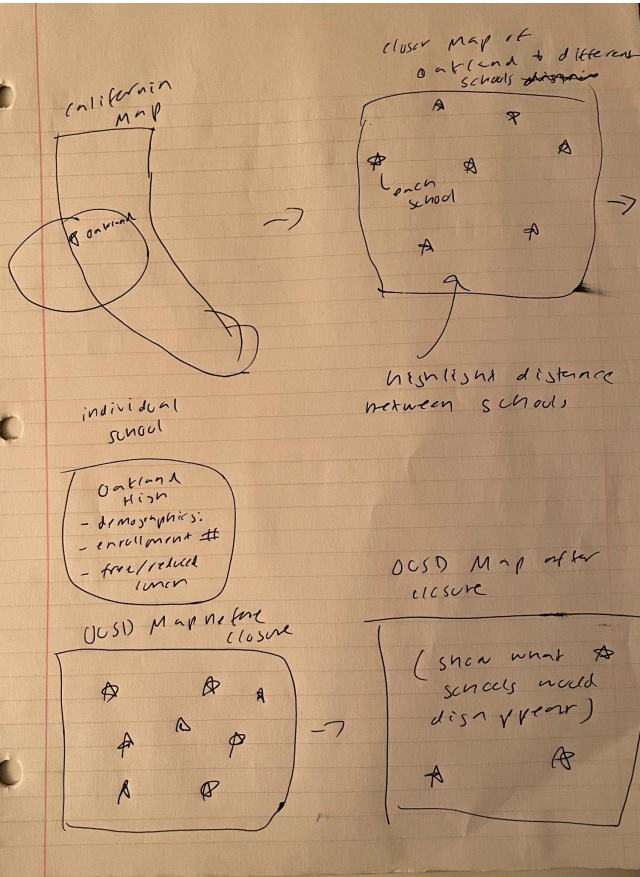 California
Map
Oakland
closer Map of
Oakland + different
schools
each
school
highlight distance
between schools
individual
school
Oakland
High
- demographics:
- enrollment #
- free/reduced
lunch
OUSD Map before
closure
OUSD Map after
closure
(show what
schools would
disappear)